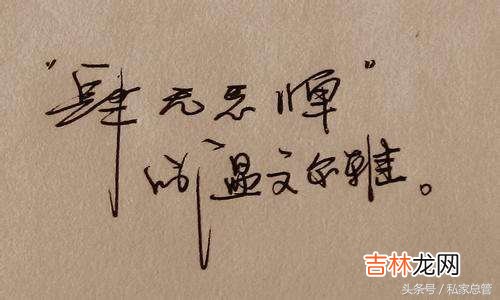 “肆无忌惮”
的温文尔雅。
吉林龙网
头条号／私家总管